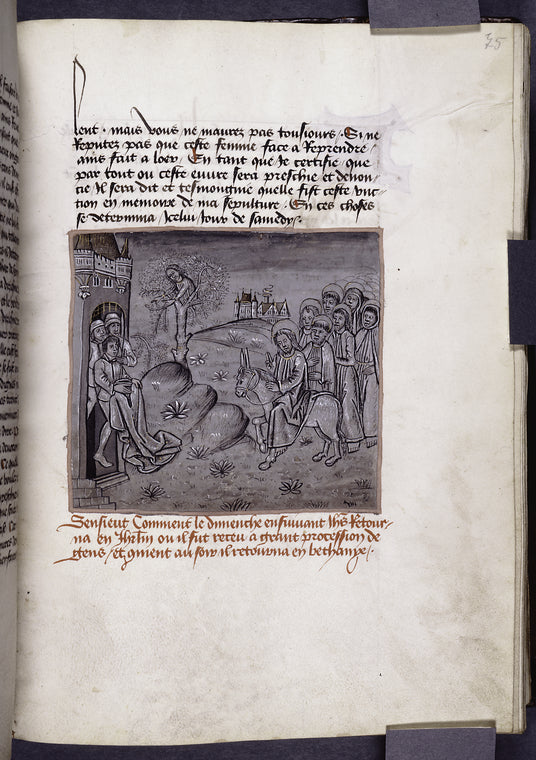 75
lent · mais vous ne maurez pas tousiours · Si ne
Reputez pas que ceste femme face a Reprendre
ains fait a loer · En tant que Je certifie que
par tout ou ceste euure sera preschie et denon
cie Jl sera dit et tesmongnie quelle fist ceste unc
tion en memoire de ma sepulture · En ces choses
se determina Jcelui Jour de samedy ·
Sensieut Comment le dimenche ensuivant Jhs Retour
na en Jhrlm ou il fut receu a grant procession de
gens / et coment au soir il retourna en bethanye ·